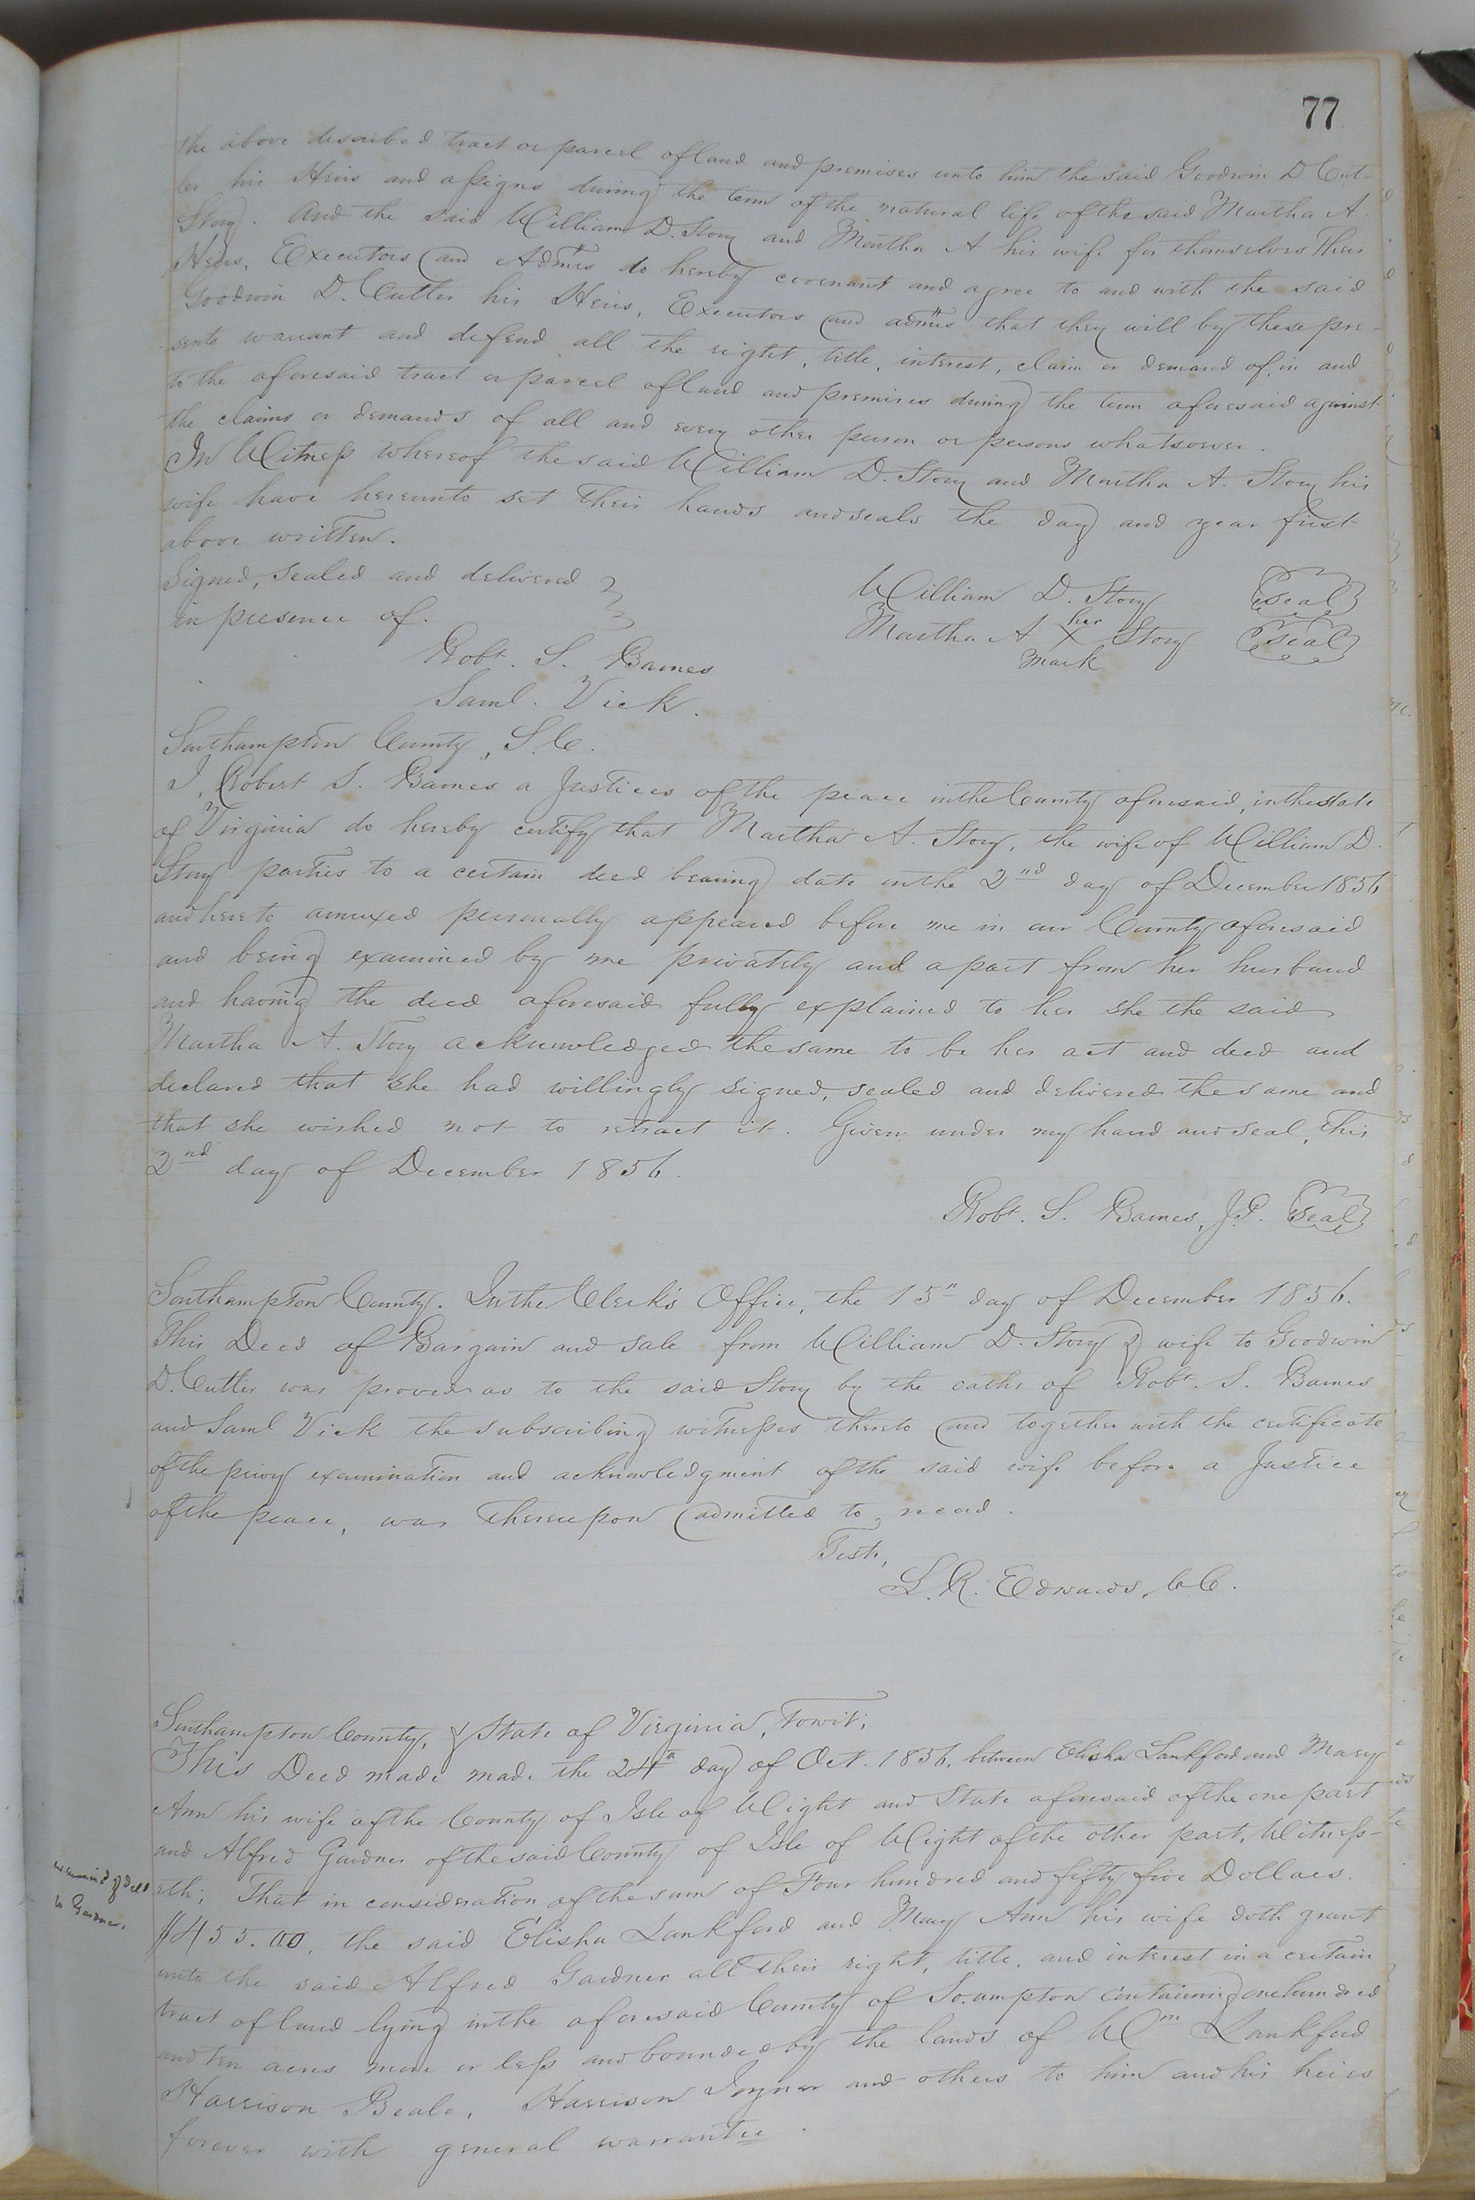 77
the above described tract or parcel of land and premises unto him the said Goodwin D Cut-
ler his Heirs and assigns during the term of the natural life of the said Martha A.
Story. And the said William D. Story and Martha A his wife for themselves Their
Heirs, Executors and Admrs do hereby covenant and agree to and with the said
Goodwin D. Cutler his Heirs, Executors and admrs that they will by these pre-
sents warrant and defend all the right, title, interest, claim or demand of, in and
to the aforesaid tract or parcel of land and premises during the term aforesaid against
the claims or demands of all and every other person or persons whatsoever.
In Witness whereof the said William D. Story and Martha A. Story his
wife have hereunto set their hands and seals the day and year first
above written.
Signed, sealed and delivered
in presence of.
William D. Story Seal
her
Martha A X Story Seal
mark
Robt. S. Barnes
Saml. Vick.
Southampton County, S.C.
I, Robert S. Barnes a Justices of the peace in the County aforesaid, in the state
of Virginia do hereby certify that Martha A. Story, the wife of William D.
Story parties to a certain deed bearing date on the 2nd day of December 1856
and hereto annexed personally appeared before me in our County aforesaid
and being examined by me privately and apart from her husband
and having the deed aforesaid fully explained to her she the said
Martha A. Story acknowledged the same to be her act and deed and
declared that she had willingly signed, sealed and delivered the same and
that she wished not to retract it. Given under my hand and seal, this
2nd day of December 1856.
Robt. S. Barnes, J.P. Seal
Southampton County. In the Clerk's Office, the 15" day of December 1856.
This Deed of Bargain and sale from William D. Story & wife to Goodwin
D. Cutler was proved as to the said Story by the oaths of Robt. S. Barnes
and Saml Vick the subscribing witnesses thereto and together with the certificate
of the privy examination and acknowledgment of the said wife before a Justice
of the peace, was thereupon admitted to record.
Teste,
L. R. Edwards, C.C.
Southampton County, & State of Virginia, Towit;
This Deed made made the 24th day of Oct. 1856, between Elisha Lankford and Mary
Ann his wife of the County of Isle of Wight and State aforesaid of the one part
and Alfred Gardner of the said County of Isle of Wight of the other part, Witness-
eth; That in consideration of the sum of Four hundred and fifty five Dollars.
$455.00, the said Elisha Lankford and Mary Ann his wife doth grant
unto the said Alfred Gardner all their right, title, and interest in a certain
tract of land lying in the aforesaid County of So.ampton containing one hundred
and ten acres more or less and bounded by the lands of Wm Lankford
Harrison Beale, Harrison Joyner and others to him and his heirs
forever with general warrantee.